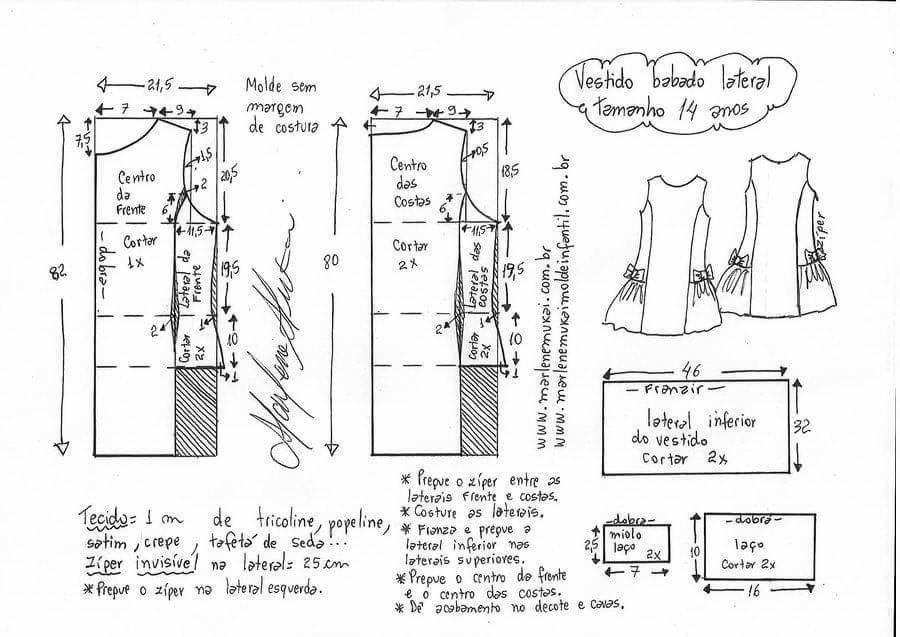 Vestido babado lateral
tamanho 14 anos
Molde sem
margem
de costura
21,5
7
9
3
7,5
1,5
2
20,5
6
Centro
da
Frente
Cortar
1x
dobra
11,5
Lateral da
Frente
19,5
82
2
1
Cortar
2x
10
1
21,5
7
9
3
0,5
18,5
6
Centro
das
Costas
Cortar
2x
11,5
Lateral das
costas
19,5
80
2
1
Cortar
2x
10
1
www.marlenemukai.com.br
www.marlenemukaimoldeinfantil.com.br
zíper
46
Franzir
lateral inferior
do vestido
cortar 2x
32
dobra
miolo
laço
2x
2,5
7
dobra
laço
Cortar 2x
10
16
Tecido = 1 m de tricoline, popeline,
satim, crepe, tafetá de seda...
Zíper invisível na lateral = 25 cm
* Pregue o zíper na lateral esquerda.
* Pregue o zíper entre as
laterais frente e costas.
* Costure as laterais.
* Franza e pregue a
lateral inferior nas
laterais superiores.
* Pregue o centro da frente
e o centro das costas.
* Dê acabamento no decote e cavas.